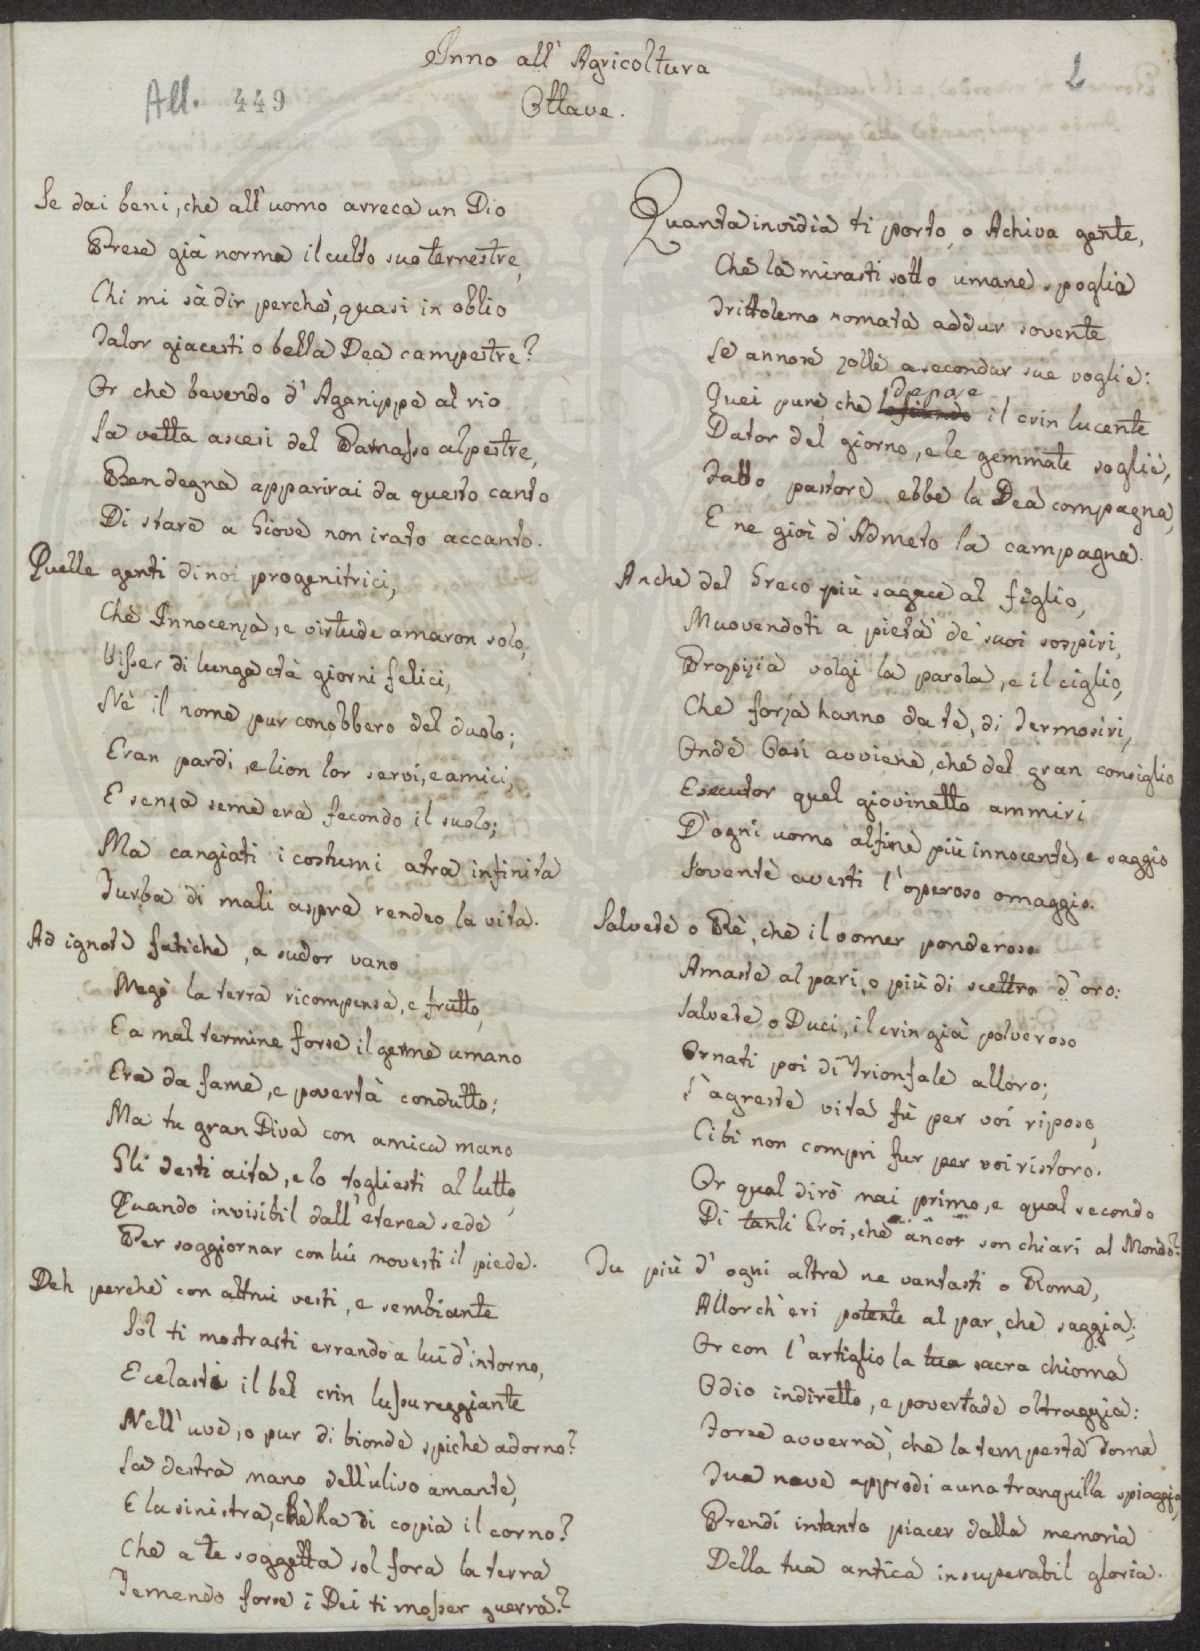 Inno all' Agricoltura
Ottave.
All. 449
2
Se dai beni, che all'uomo arreca un Dio
Prese già norma il culto suo terrestre,
Chi mi sà dir perchè, quasi in oblio
Talor giacesti o bella Dea campestre?
Or che bevendo d' Aganippe al rio
La vetta ascesi del Parnasso alpestre,
Ben degna apparirai da questo canto
Di stare a Giove non irato accanto.
Quelle genti di noi progenitrici,
Che Innocenza, e virtude amaron solo,
Visser di lunga età giorni felici,
Nè il nome pur conobbero del duolo;
Eran pardi, e lion lor servi, e amici,
E senza seme era fecondo il suolo;
Ma cangiati i costumi atra infinita
Turba di mali aspra rendeo la vita.
Ad ignote fatiche, a sudor vano
Negò la terra ricompensa, e frutto,
E a mal termine forse il germe umano
Era da fame, e povertà condutto;
Ma tu gran Diva con amica mano
Gli desti aita, e lo togliesti al lutto,
Quando invisibil dall' eterea sede
Per soggiornar con lui movesti il piede.
Deh perchè con altrui vesti, e sembiante
Sol ti mostrasti errando a lui d'intorno,
E celasti il bel crin lussureggiante
Nell' uve, o pur di bionde spiche adorno?
La destra mano dell'ulivo amante,
E la sinistra, che ha di copia il corno?
Che a te soggetta sol fora la terra
Temendo forse i Dei ti mosser guerra?
Quanta invidia ti porto, o Achiva gente,
Che là mirasti sotto umane spoglie
Trittolemo nomata addur sovente
Le annose zolle a secondar sue voglie:
Quei pure che depose il crin lucente
Dator del giorno, e le gemmate soglie,
Fatto pastore ebbe la Dea compagna,
E ne gioì d'Admeto la campagna.
Anche del Greco più sagace al figlio,
Muovendoti a pietà de' suoi sospiri,
Propizia volgi la parola, e il ciglio,
Che forza hanno da te, di Termosiri,
Onde Oasi avviene, che del gran consiglio
Esecutor quel giovinetto ammiri
D'ogni uomo alfine più innocente, e saggio
Sovente avesti l'operoso omaggio.
Salvete o Rè, che il vomer ponderoso
Amaste al pari, o più di scettro d'oro:
Salvete, o Duci, il crin già polveroso
Ornati poi di Trionfale alloro;
L'agreste vita fù per voi riposo,
Cibi non compri fur per voi ristoro.
Or qual dirò mai primo, e qual secondo
Di tanti Eroi, che ancor son chiari al Mondo?
Tu più d' ogni altra ne vantasti o Roma,
Allorch' eri potente al par, che saggia;
Or con l'artiglio la tua sacra chioma
Odio indiretto, e povertade oltraggia:
Forse avverrà, che la tempesta doma
Tua nave approdi a una tranquilla spiaggia,
Prendi intanto piacer dalla memoria
Della tua antica insuperabil gloria.